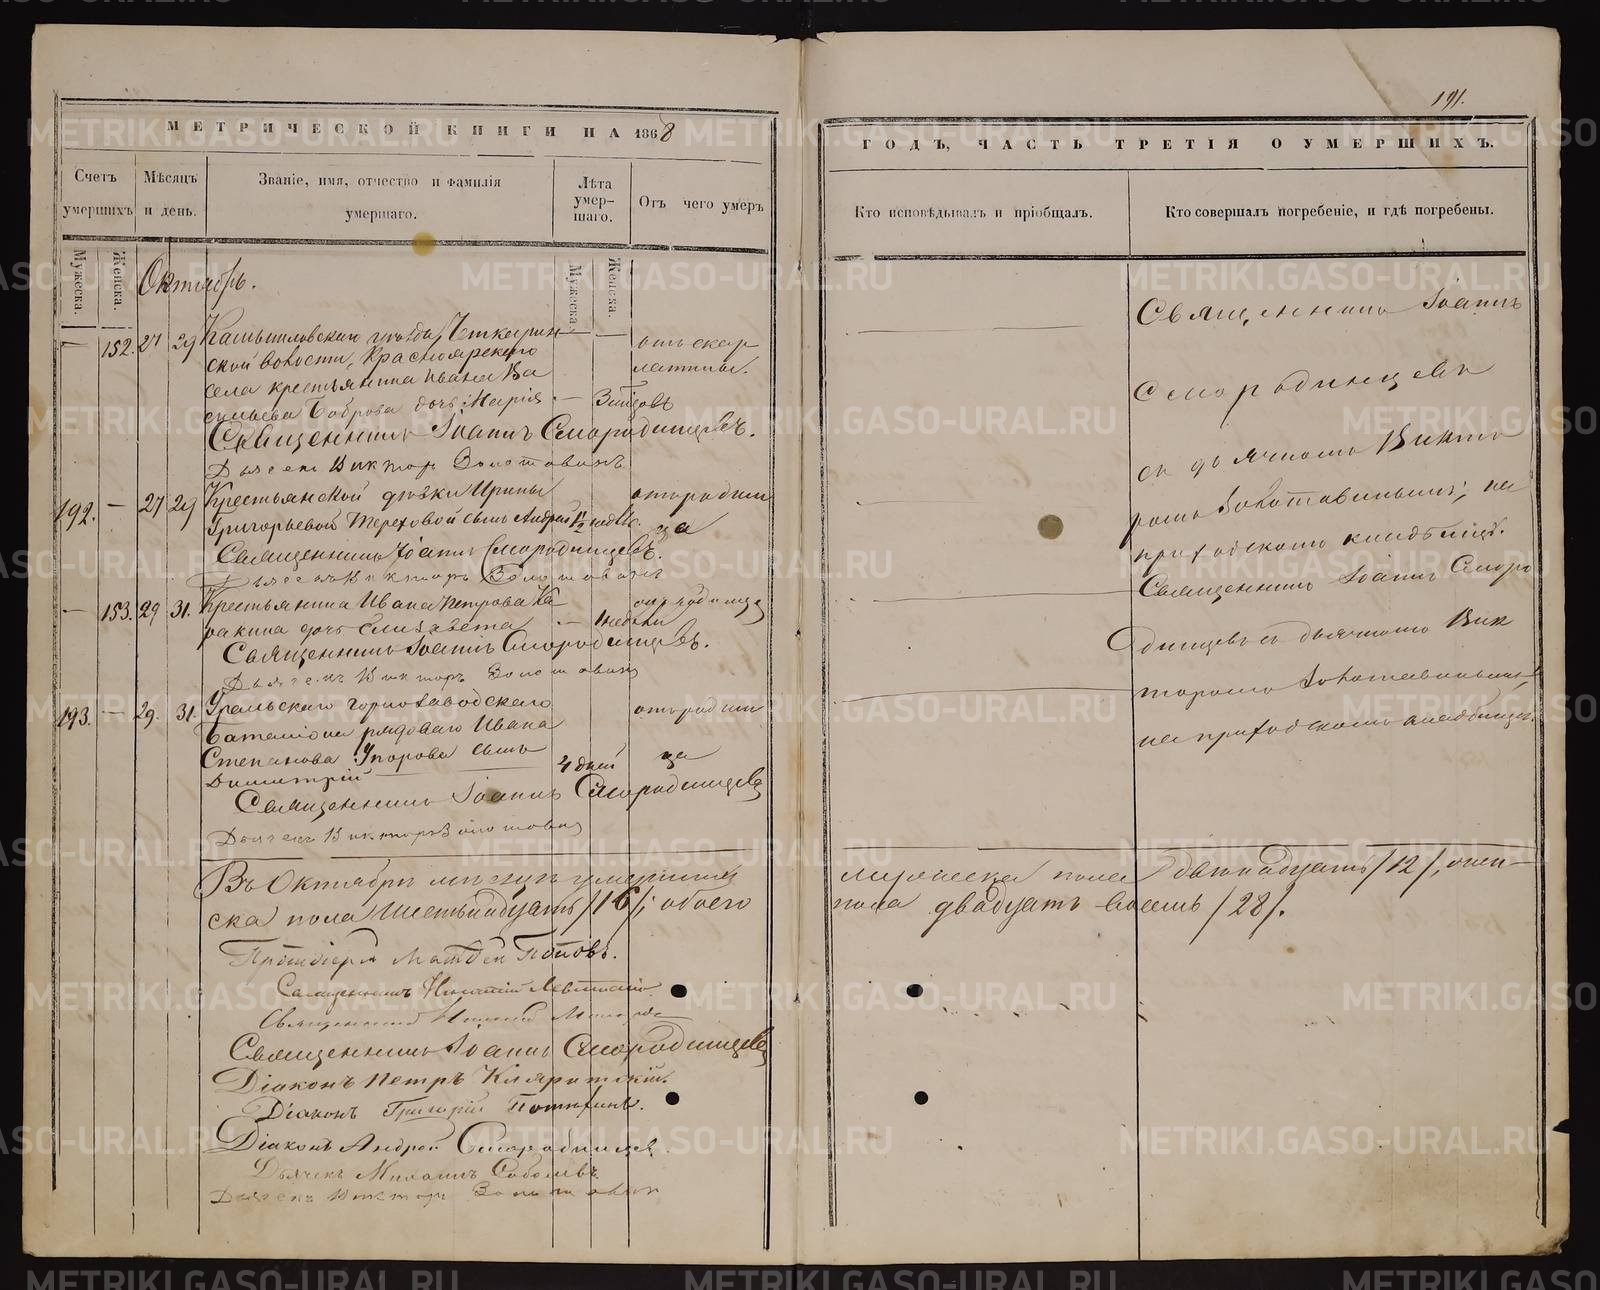 191.
МЕТРИЧЕСКОЙ КНИГИ НА 1868
ГОДЪ, ЧАСТЬ ТРЕТІЯ О УМЕРШИХЪ.
Счетъ умершихъ
Мѣсяцъ и день.
Званіе, имя, отчество и фамилія умершаго.
Лѣта умершаго.
Отъ чего умеръ
Кто исповѣдывалъ и пріобщалъ.
Кто совершалъ погребеніе, и гдѣ погребены.
Мужеска.
Женска.
Мужеска.
Женска.
Октябрь.
— 152. 27 29 Камышловскаго уѣзда, Четкарин-
ской волости, Красноярскаго
села крестьянина Ивана Ва
сильева Боброва дочь Марія — 3
отъ скар
латины.
Священникъ Іоаннъ Смородинцевъ.
Дьячекъ Викторъ Золотавинъ
192. — 27 29 Крестьянской дѣвки Ирины
Григорьевой Тереховой сынъ Андрей
отъ родим
ца
Священникъ Іоаннъ Смородинцевъ.
Дьячекъ Викторъ Золотавинъ
— 153. 29 31. Крестьянина Ивана Петрова Ка
ракина дочь Елизавета — 1 недѣли
отъ родимца
Священникъ Іоаннъ Смородинцевъ.
Дьячекъ Викторъ Золотавинъ
193. — 29. 31. Уральскаго горнозаводскаго
баталіона рядоваго Ивана
Степанова Упорова сынъ
Димитрій 4 дней
отъ родим
ца
Священникъ Іоаннъ Смородинцевъ
Дьячекъ Викторъ Золотавинъ
Священникъ Іоаннъ
Смородинцевъ
съ дьячкомъ Викто
ромъ Золотавинымъ, на
приходскомъ кладбищѣ.
Священникъ Іоаннъ Сморо
динцевъ съ дьячкомъ Вик
торомъ Золотавинымъ,
на приходскомъ кладбищѣ.
Въ Октябрѣ мѣсяцѣ умершихъ
мужеска пола двѣнадцать /12/, жен-
ска пола шестьнадцать /16/; обоего
пола двадцать восемь /28/.
Протоіерей Матѳей Поповъ.
Священникъ Левитскій
Священникъ
Священникъ Іоаннъ Смородинцевъ
Діаконъ Петръ Кіяритскій.
Діаконъ Григорій
Діаконъ Андрей Смородинцевъ
Дьячекъ Михаилъ Соболевъ
Дьячекъ Викторъ Золотавинъ
METRIKI.GASO-URAL.RU